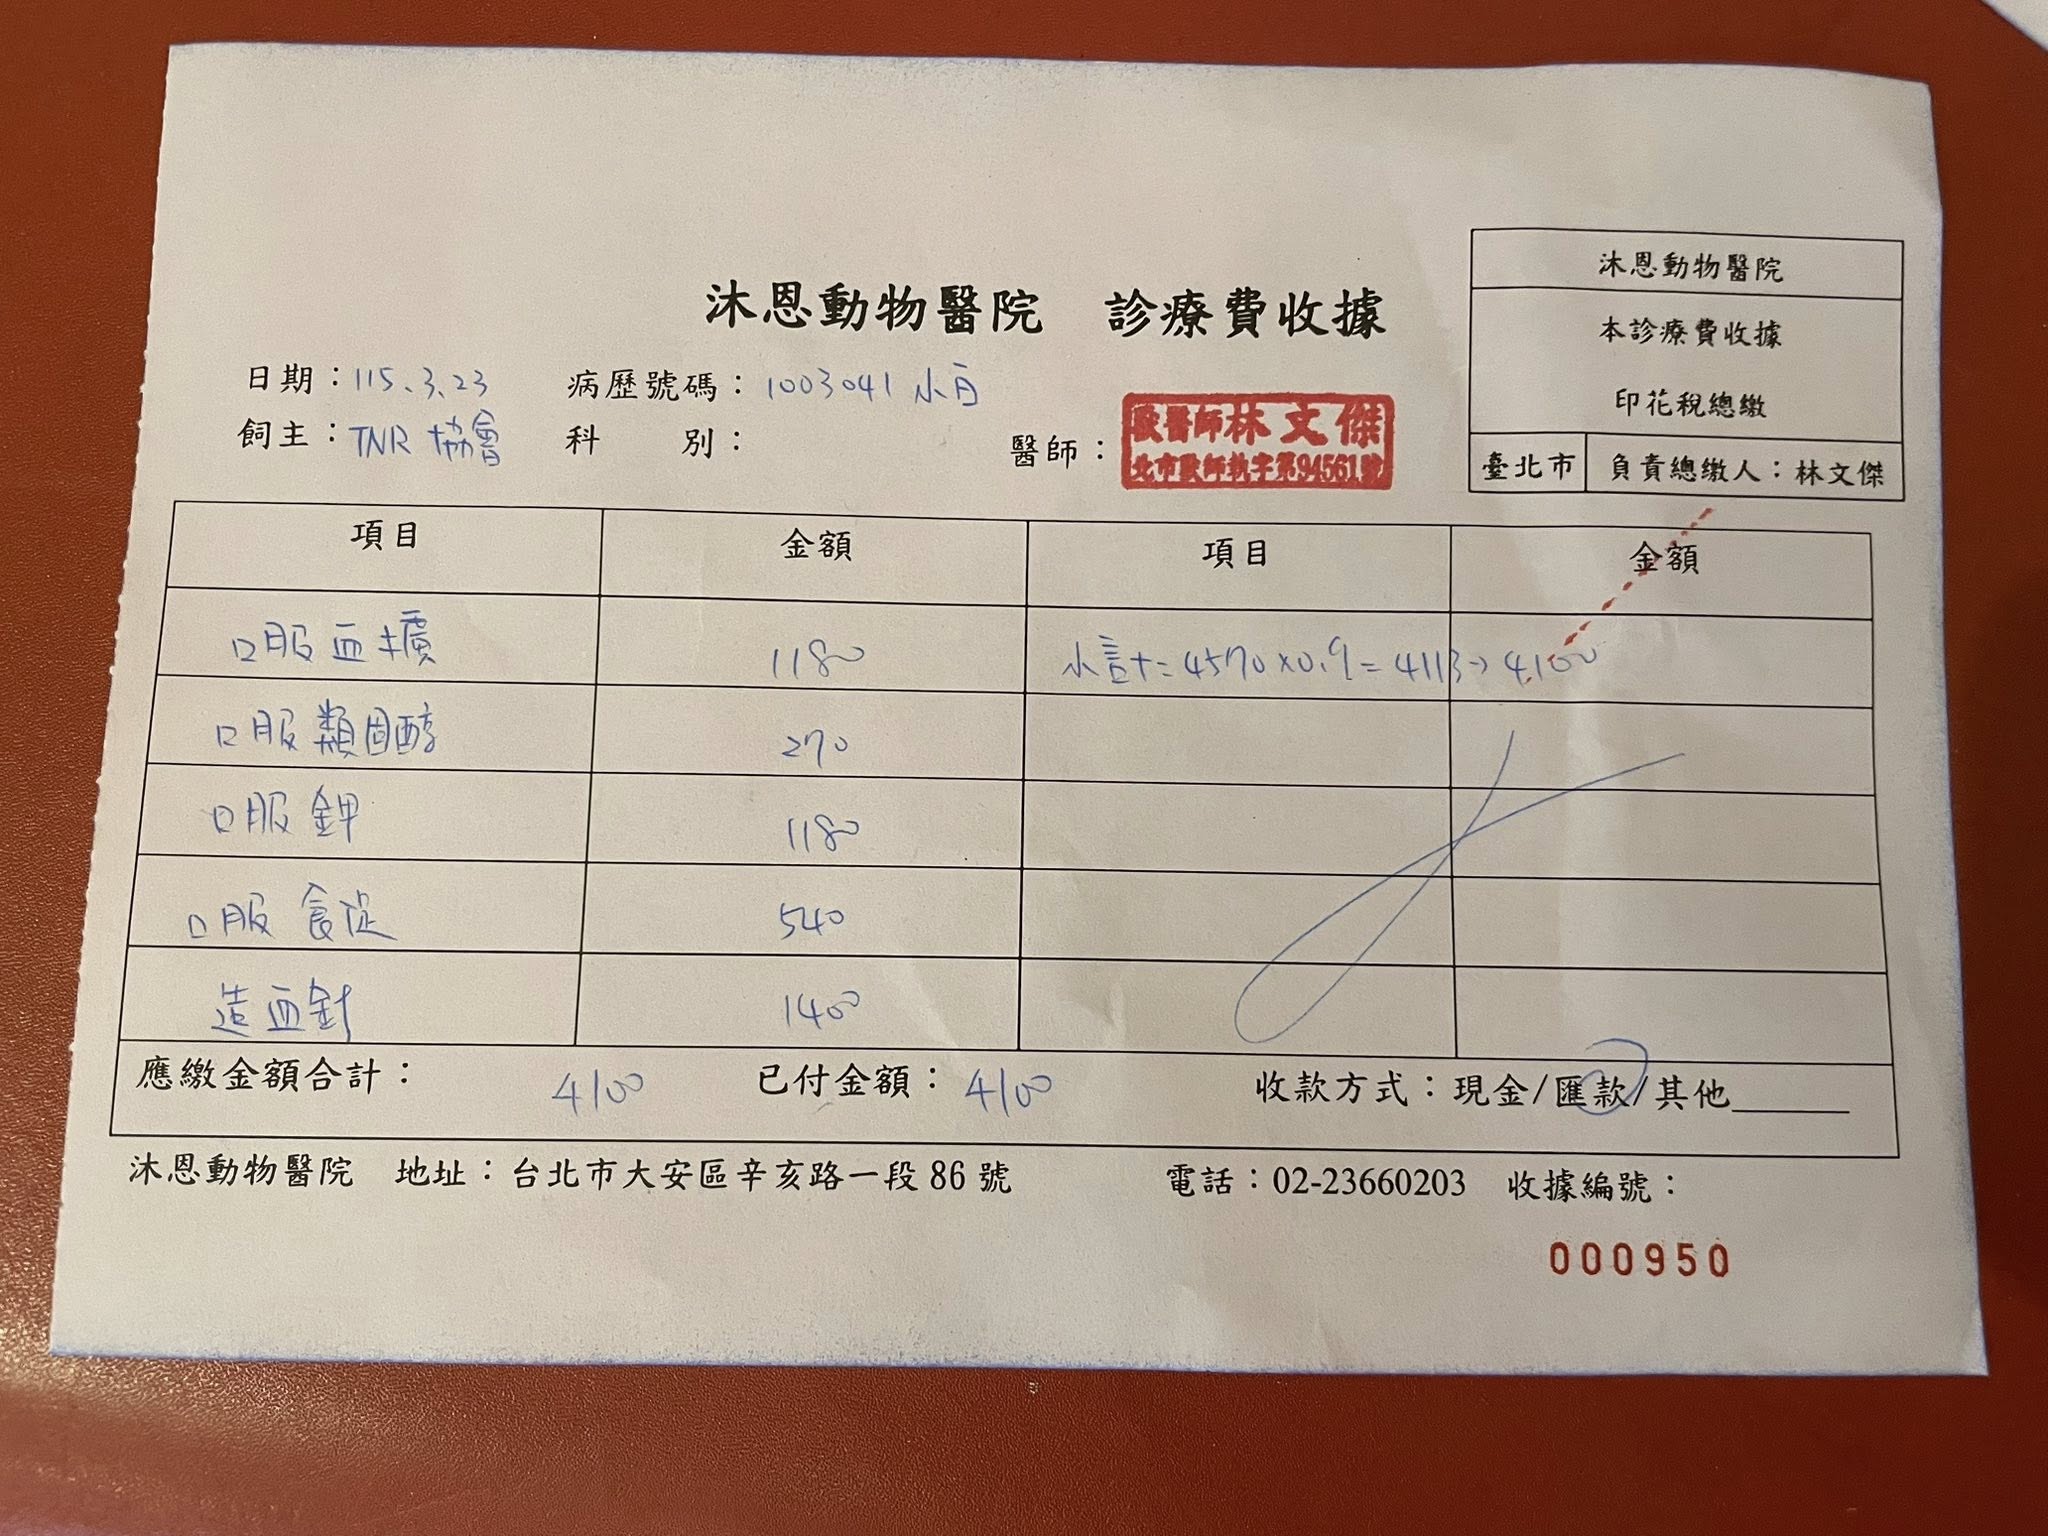 沐恩動物醫院 診療費收據
沐恩動物醫院
本診療費收據
印花稅總繳
臺北市 負責總繳人：林文傑
日期：115.3.23 病歷號碼：1003041 小白
飼主：TNR 協會 科 別： 醫師：
獸醫師林文傑
北市獸師執字第94561號
項目 金額 項目 金額
口服血擴 1180 小計=4570×0.9=4113→4,100
口服類固醇 270
口服鉀 1180
口服食促 540
造血針 1400
應繳金額合計： 4100 已付金額：4100 收款方式：現金/匯款/其他______
沐恩動物醫院 地址：台北市大安區辛亥路一段 86 號 電話：02-23660203 收據編號：
000950